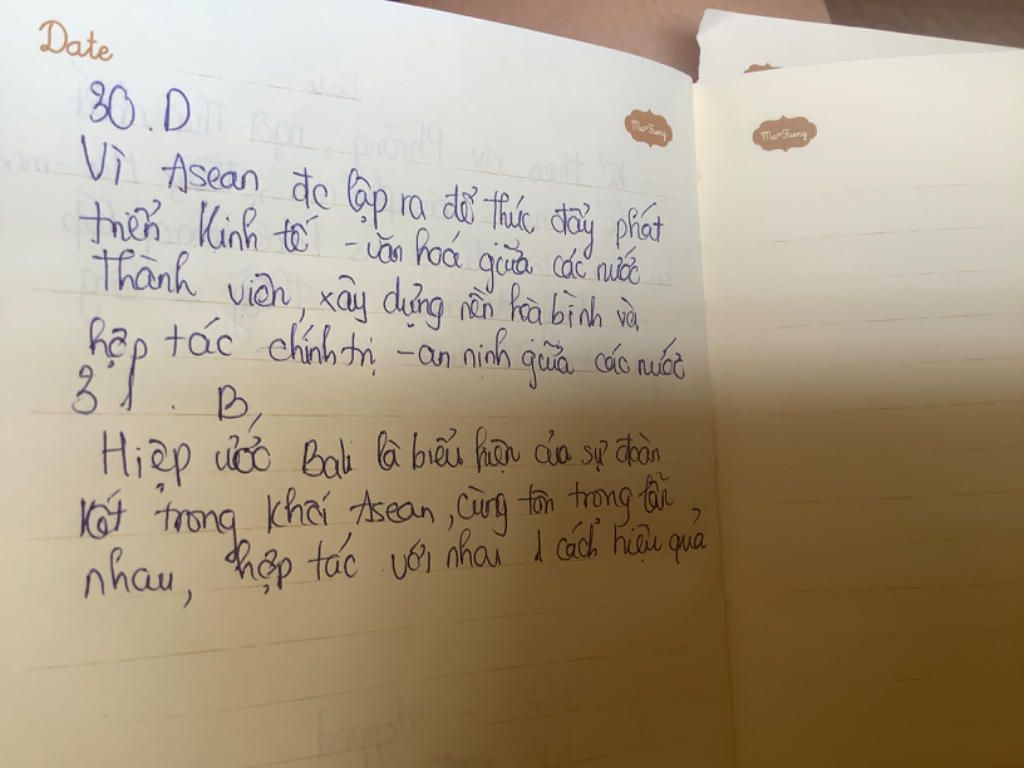 Date
30.D
Vì Asean đc lập ra để thúc đẩy phát
triển kinh tế - văn hoá giữa các nước
thành viên, xây dựng nền hoà bình và
hợp tác chính trị - an ninh giữa các nước
31. B,
Hiệp ước Bali là biểu hiện của sự đoàn
kết trong khối Asean, cùng tôn trong lẫn
nhau, hợp tác với nhau 1 cách hiệu quả